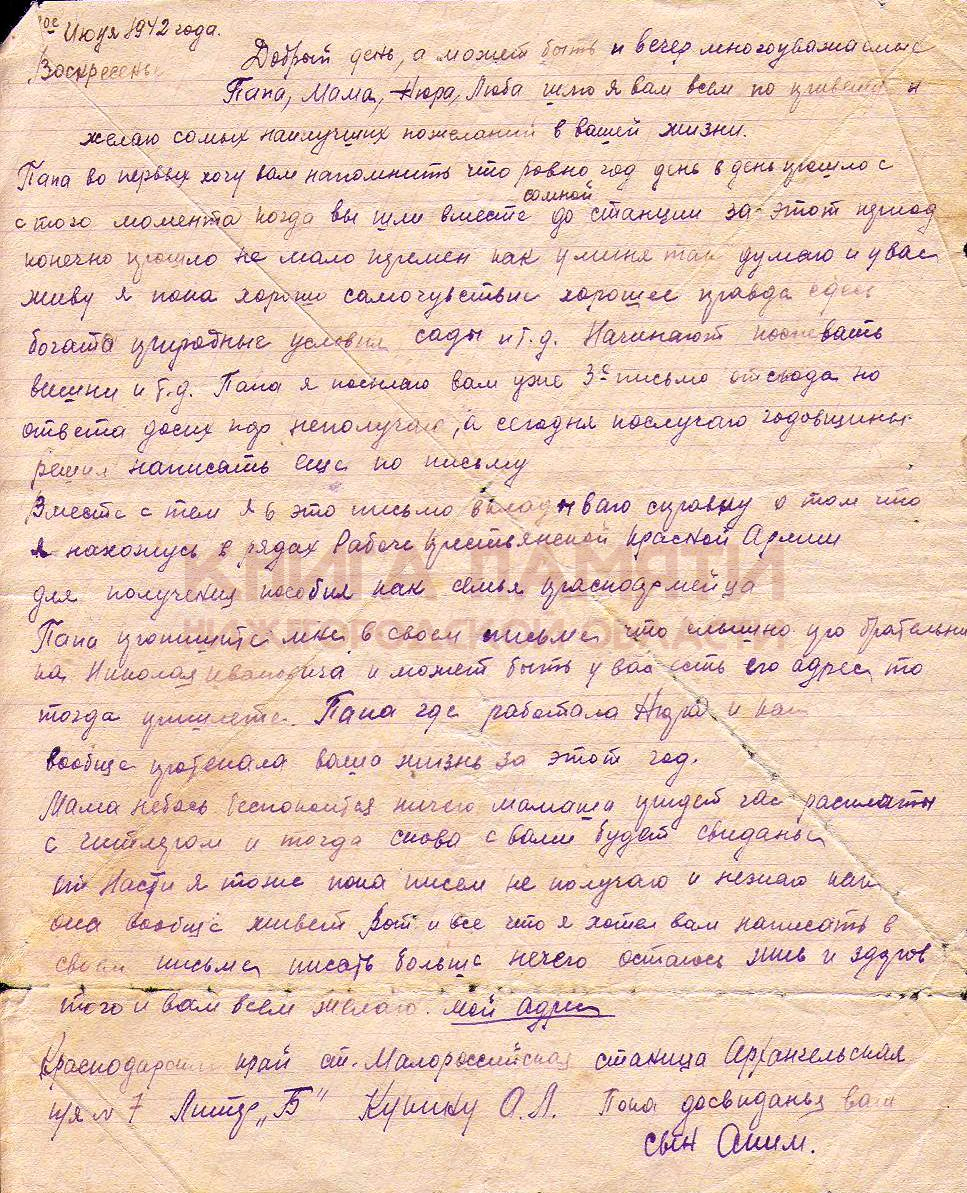 ое Июня 1942 года.
Воскресенье
Добрый день, а может быть и вечер многоуважаемые
Папа, Мама, Нюра, Люба шлю я вам всем по привету и
желаю самых наилучших пожеланий в вашей жизни.
Папа во первых хочу вам напомнить что ровно год день в день прошло с
сомной
с того момента когда вы шли вместе до станции за этот период
конечно прошло не мало перемен как уминя так думаю и увас
живу я пока хорошо самочувствие хорошее правда здесь
богата природные условия сады и т.д. Начинают поспевать
вишни и т.д. Папа я посылаю вам уже 3е письмо отсюда но
ответа досих пор неполучаю, а сегодня послучаю годовщины
решил написать еще по письму
Вместе с тем я в это письмо вкладываю справку о том что
я нахожусь в рядах Рабоче Крестьянской Красной Армии
для получения пособия как семья красноармейца
КНИГА ПАМЯТИ
НИЖЕГОРОДСКОЙ ОБЛАСТИ
Папа пропишите мне в своем письме что слышно про брательни
ка Николая Ивановича и может быть у вас есть его адрес то
тогда пришлете. Папа где работала Нюра и как
вообще протекала ваша жизнь за этот год.
Мама небось беспокоится ничего мамаша придет час расплаты
с гитлером и тогда снова с вами будет свиданье
от Насти я тоже пока писем не получаю и незнаю как
она вообще живет Вот и все что я хотел вам написать в
своем письме писать больше нечего остаюсь жив и здоров
того и вам всем желаю. мой адрес
Краснодарский край ст. Малороссийская станица Архангельская
п/я № 7 Литер „Б" Кунину А.Л. Пока досвиданья ваш
сын Аким.